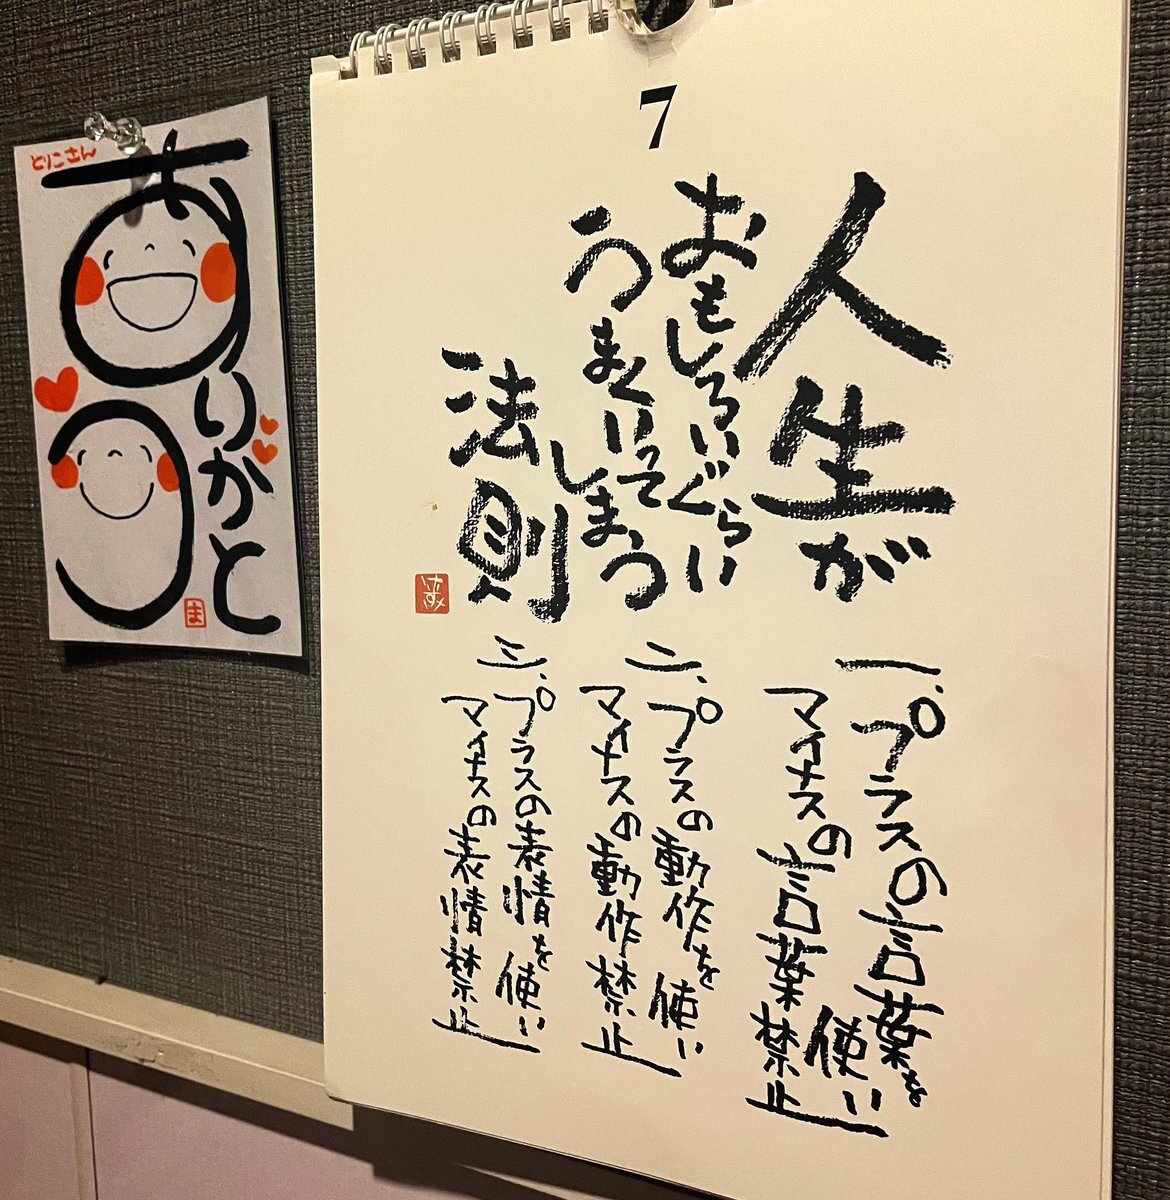 7
人生が
おもしろいぐらい
うまくいってしまう
法則
一、プラスの言葉を使い
マイナスの言葉禁止
二、プラスの動作を使い
マイナスの動作禁止
三、プラスの表情を使い
マイナスの表情禁止
とりこさん
ありがとう
ま